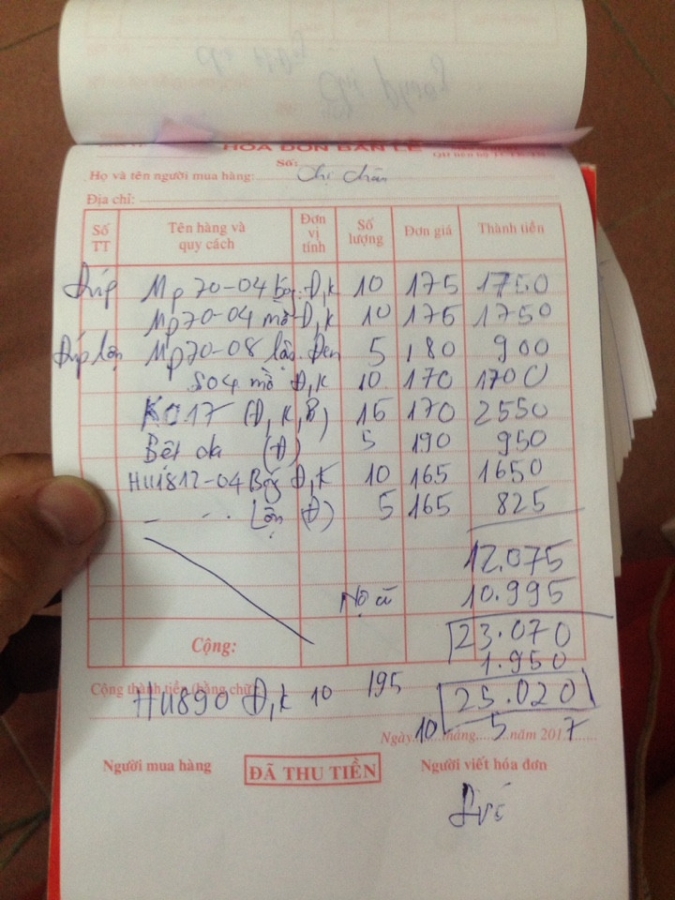 HÓA ĐƠN BÁN LẺ
Số:
Họ và tên người mua hàng: Chị
Địa chỉ:
Số TT Tên hàng và quy cách Đơn vị tính Số lượng Đơn giá Thành tiền
Mp70-04 Đ,K 10 175 1750
Mp70-04 mờ Đ,K 10 175 1750
Mp70-08 lộn Đen 5 180 900
S04 mờ Đ,K 10 170 1700
K017 (Đ,K,B) 15 170 2550
Bệt da (Đ) 5 190 950
HU1812-04 Bóng Đ,K 10 165 1650
Lộn (Đ) 5 165 825
12.075
Nợ cũ 10.995
Cộng: 23.070
1.950
Cộng thành tiền (bằng chữ)
HU890 Đ,K 10 195 25.020
Ngày 10 tháng 5 năm 2017
Người mua hàng ĐÃ THU TIỀN Người viết hóa đơn